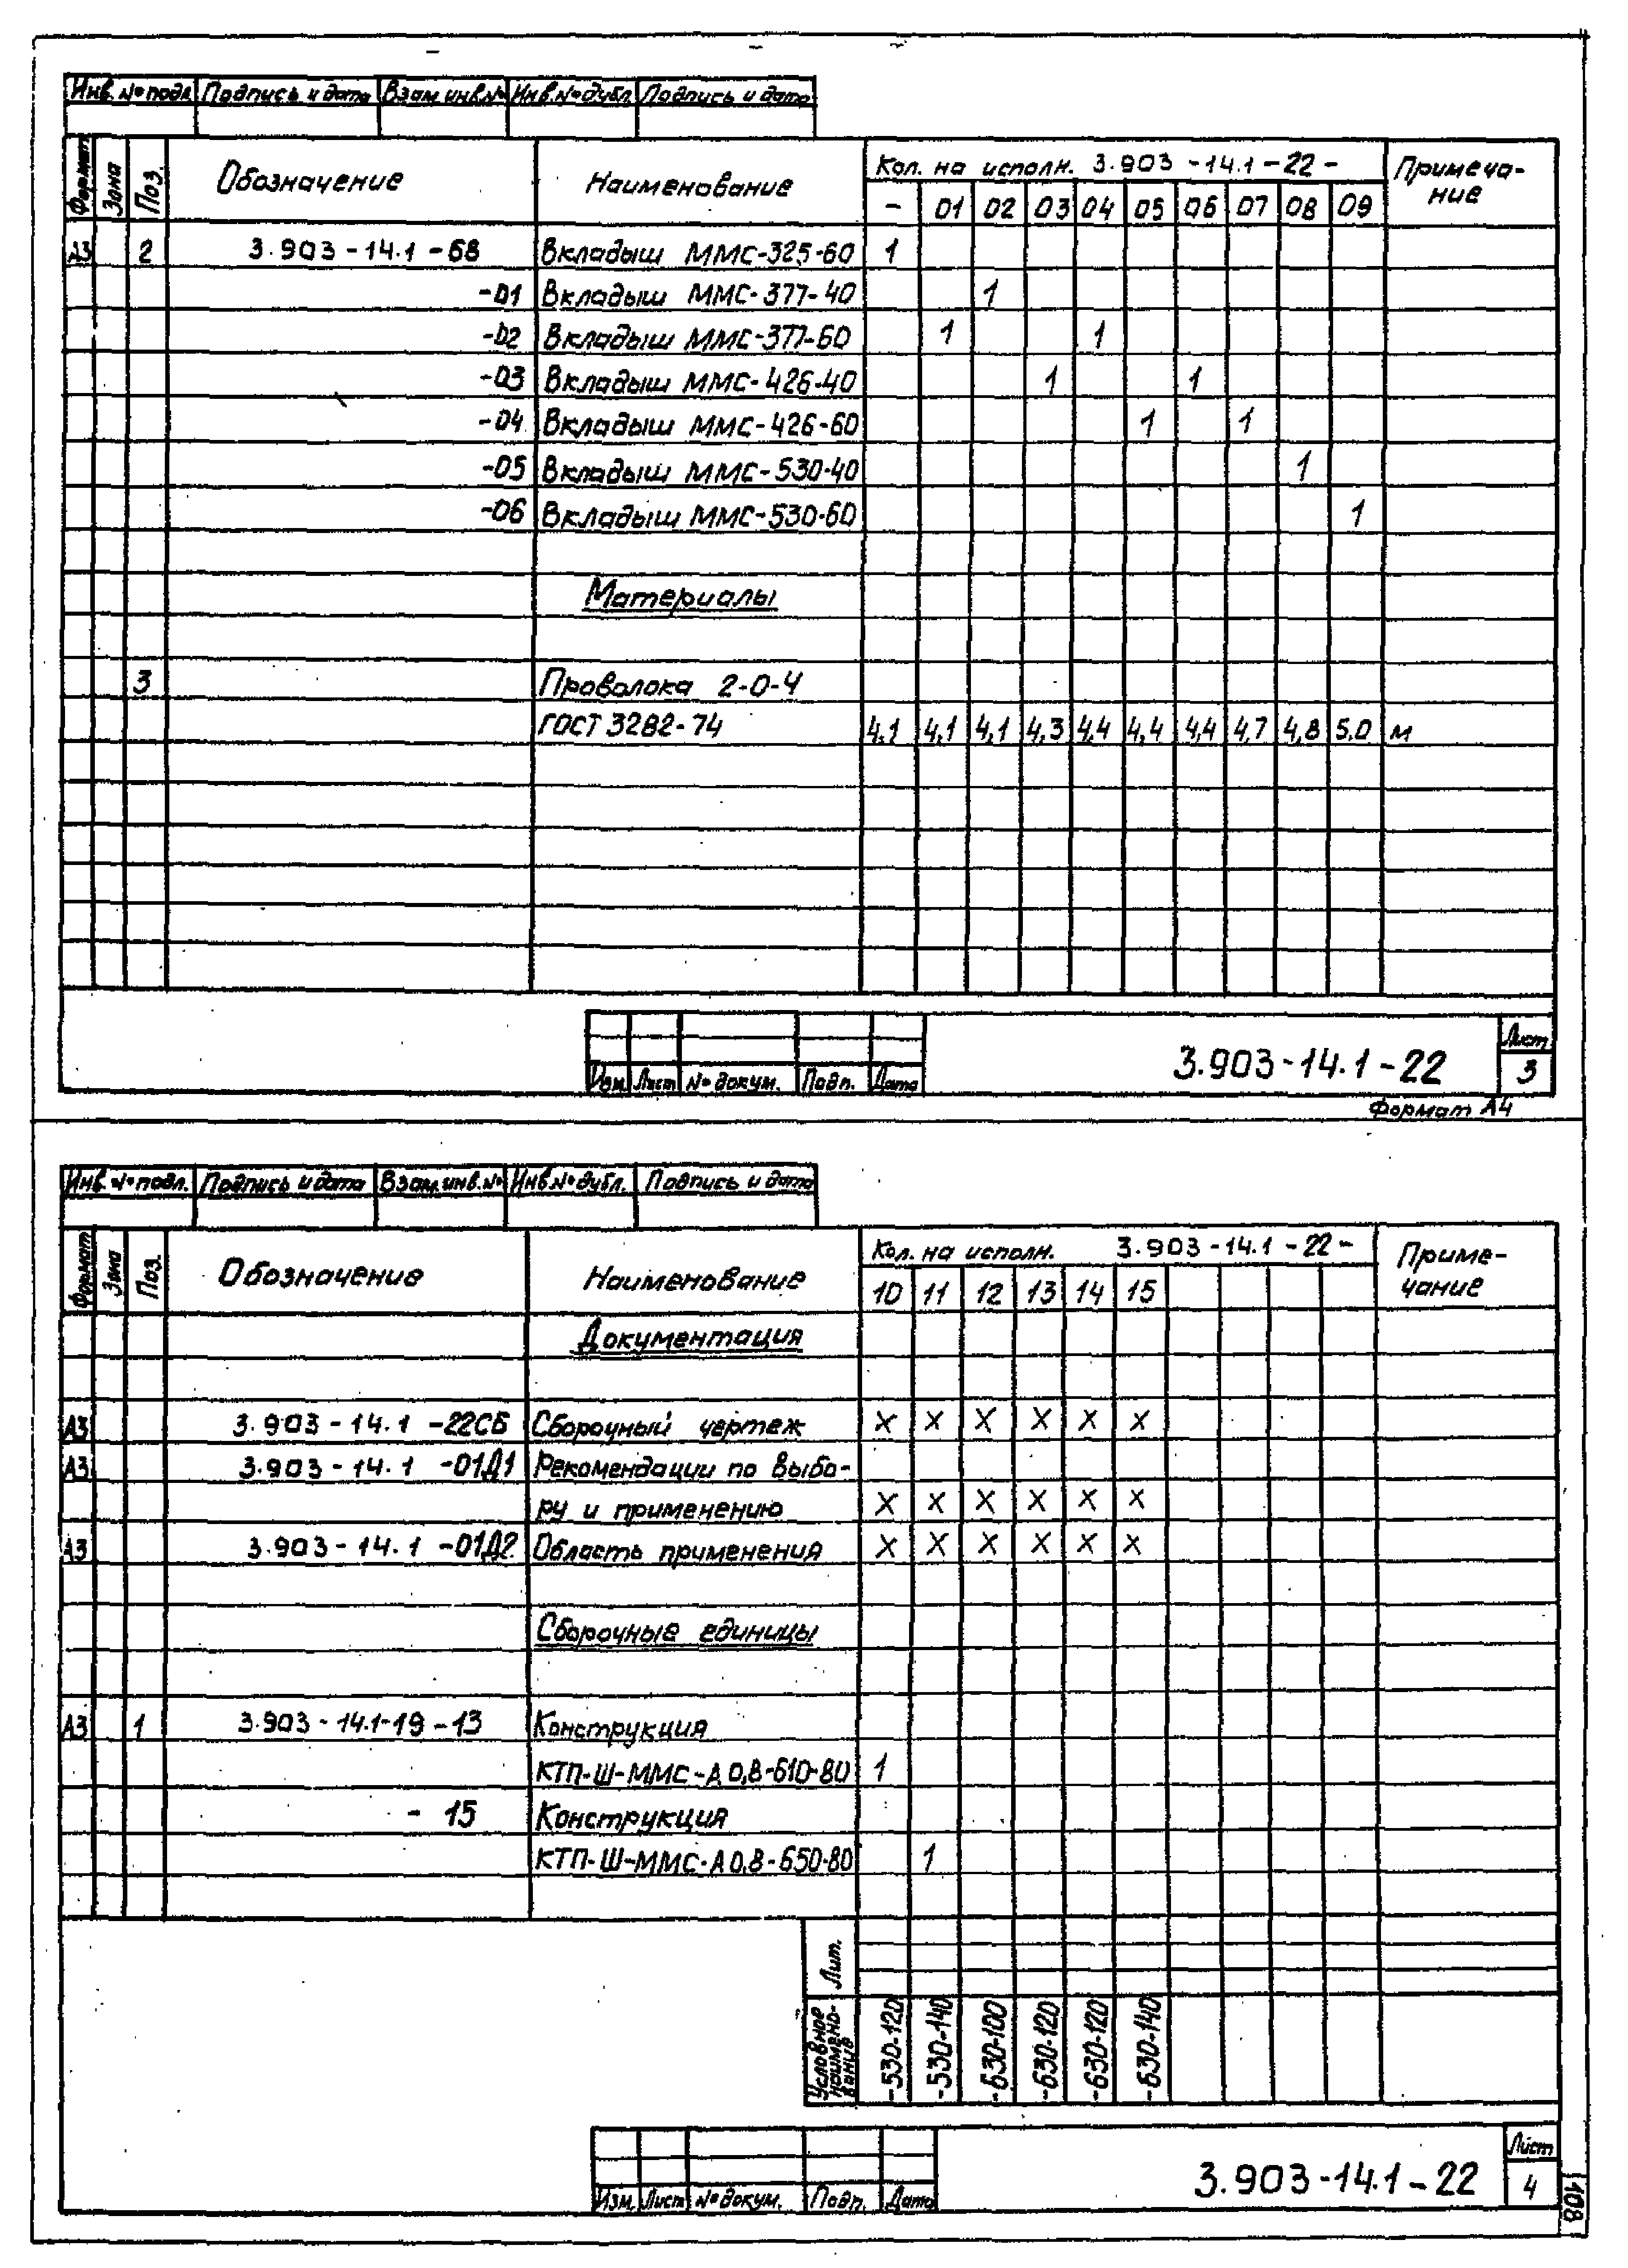 Инв. № подл. Подпись и дата Взам. инв. № Инв. № дубл. Подпись и дата
Формат Зона Поз. Обозначение Наименование Кол. на исполн. 3.903-14.1-22- Примеча-
ние
- 01 02 03 04 05 06 07 08 09
А3 2 3.903-14.1-68 Вкладыш ММС-325-60 1
-01 Вкладыш ММС-377-40 1
-02 Вкладыш ММС-377-60 1 1
-03 Вкладыш ММС-426-40 1 1
-04 Вкладыш ММС-426-60 1 1
-05 Вкладыш ММС-530-40 1
-06 Вкладыш ММС-530-60 1
Материалы
3 Проволока 2-0-Ч
ГОСТ 3282-74 4,1 4,1 4,1 4,3 4,4 4,4 4,4 4,7 4,8 5,0 м
Изм. Лист № докум. Подп. Дата
3.903-14.1-22
Лист
3
Формат А4
Инв. № подл. Подпись и дата Взам. инв. № Инв. № дубл. Подпись и дата
Формат Зона Поз. Обозначение Наименование Кол. на исполн. 3.903-14.1-22- Приме-
чание
10 11 12 13 14 15
Документация
А3 3.903-14.1-22СБ Сборочный чертеж X X X X X X
А3 3.903-14.1-01Д1 Рекомендации по выбо-
ру и применению X X X X X X
А3 3.903-14.1-01Д2 Область применения X X X X X X
Сборочные единицы
А3 1 3.903-14.1-19-13 Конструкция
КТП-Ш-ММС-А0,8-610-80 1
-15 Конструкция
КТП-Ш-ММС-А0,8-650-80 1
Лит.
Условное наимено-вание -530-120 -530-140 -630-100 -630-120 -630-120 -630-140
Изм. Лист № докум. Подп. Дата
3.903-14.1-22
Лист
4
108